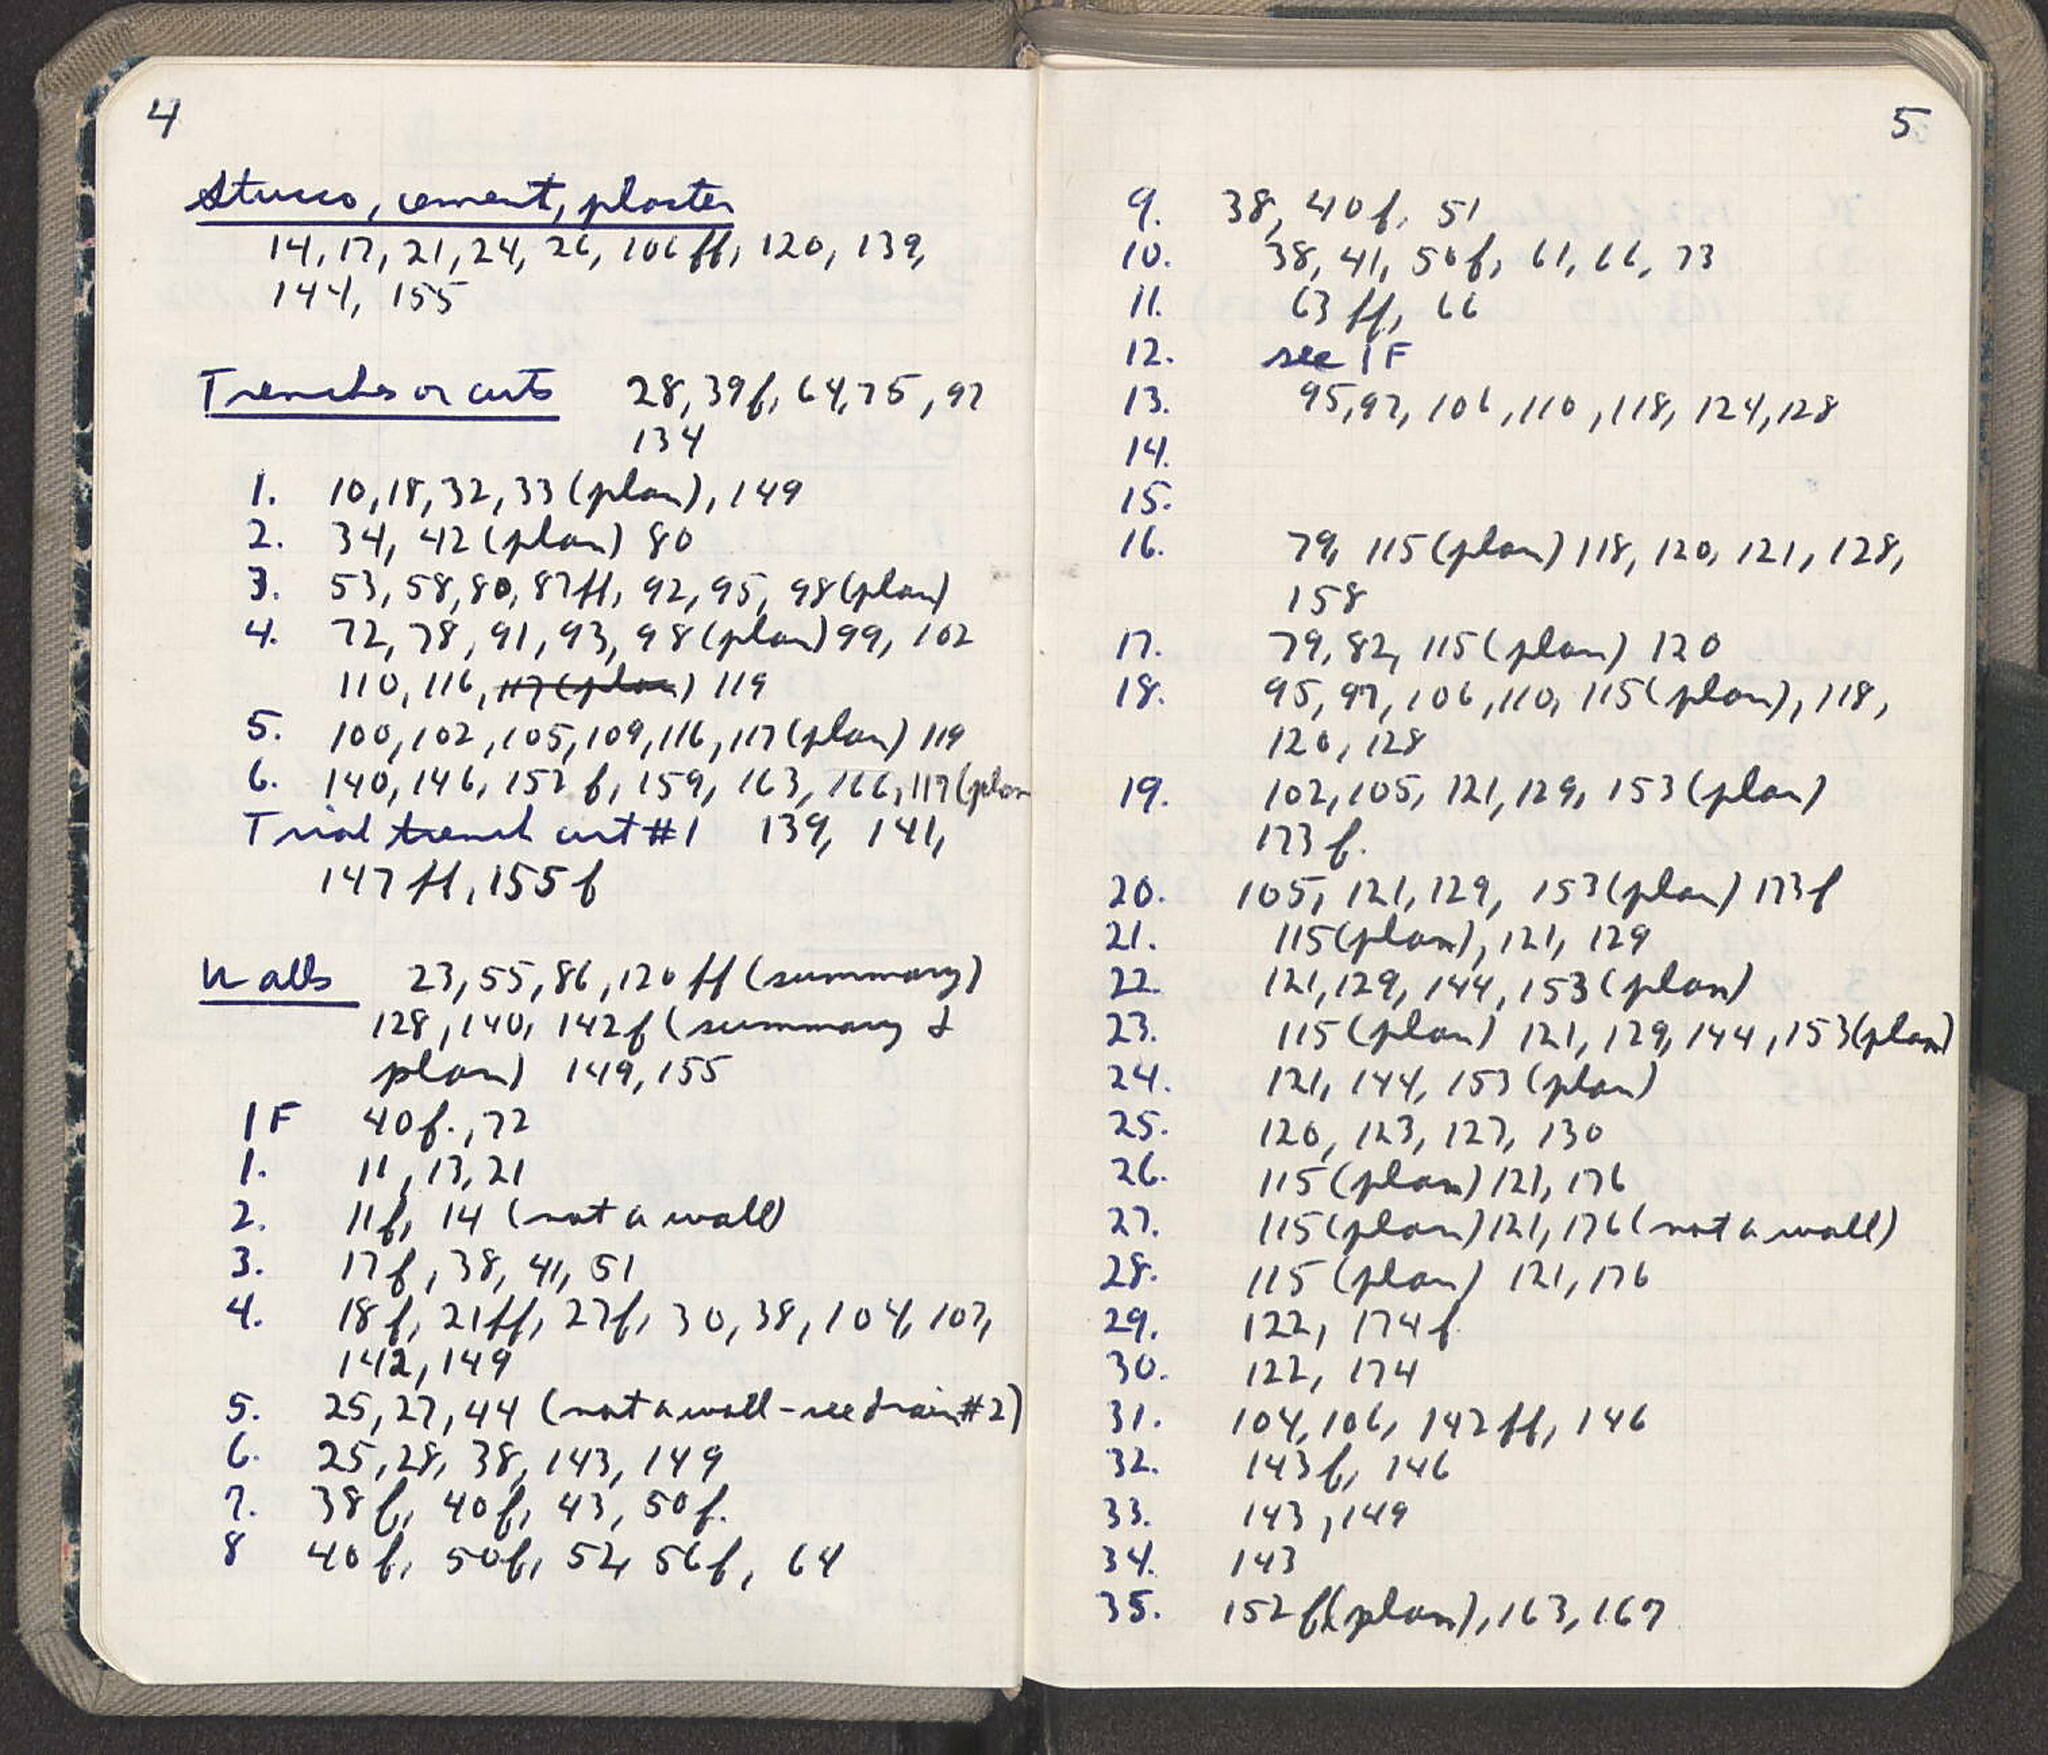 4
Stucco, cement, plaster
14, 17, 21, 24, 26, 106 ff, 120, 139,
144, 155
Trenches or cuts 28, 39f, 64, 75, 97
134
1. 10, 18, 32, 33 (plan), 149
2. 34, 42 (plan) 80
3. 53, 58, 80, 87ff, 92, 95, 98 (plan)
4. 72, 78, 91, 93, 98 (plan) 99, 102
110, 116, 117 (plan) 119
5. 100, 102, 105, 109, 116, 117 (plan) 119
6. 140, 146, 152 f, 159, 163, 166, 117 (plan
Trial trench cut #1 139, 141,
147 ff, 155 f
Walls 23, 55, 86, 120 ff (summary)
128, 140, 142f (summary &
plan) 149, 155
1F 40f., 72
1. 11, 13, 21
2. 11f, 14 (not a wall)
3. 17f, 38, 41, 51
4. 18f, 21ff, 27f, 30, 38, 104, 107,
142, 149
5. 25, 27, 44 (not a wall - see drain #2)
6. 25, 28, 38, 143, 149
7. 38f, 40f, 43, 50f.
8 40f, 50f, 52, 56f, 64
5
9. 38, 40f, 51
10. 38, 41, 50f, 61, 66, 73
11. 63 ff, 66
12. see 1F
13. 95, 97, 106, 110, 118, 124, 128
14.
15.
16. 79, 115 (plan) 118, 120, 121, 128,
158
17. 79, 82, 115 (plan) 120
18. 95, 97, 106, 110, 115 (plan), 118,
120, 128
19. 102, 105, 121, 129, 153 (plan)
173 f.
20. 105, 121, 129, 153 (plan) 173f
21. 115 (plan), 121, 129
22. 121, 129, 144, 153 (plan)
23. 115 (plan) 121, 129, 144, 153 (plan)
24. 121, 144, 153 (plan)
25. 120, 123, 127, 130
26. 115 (plan) 121, 176
27. 115 (plan) 121, 176 (not a wall)
28. 115 (plan) 121, 176
29. 122, 174f
30. 122, 174
31. 104, 106, 142 ff, 146
32. 143f, 146
33. 143, 149
34. 143
35. 152 f (plan), 163, 167